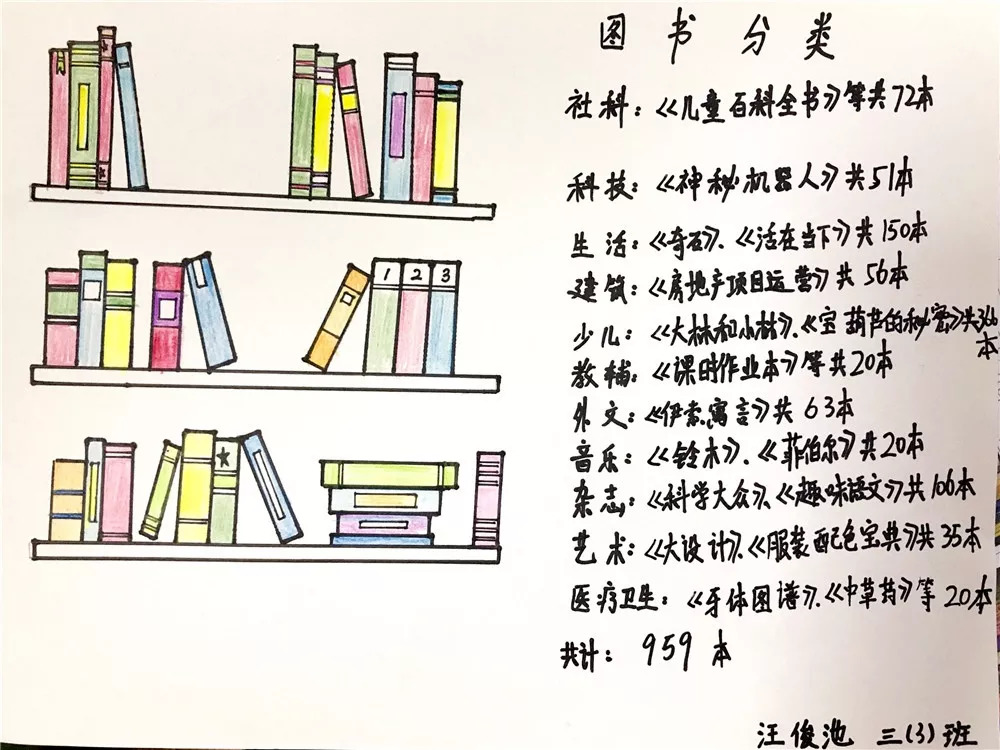 图书分类
社科：《儿童百科全书》等共72本
科技：《神秘机器人》共51本
生活：《奇石》、《活在当下》共150本
建筑：《房地产项目运营》共56本
少儿：《大林和小林》、《宝葫芦的秘密》共366
本
教辅：《课时作业本》等共20本
外文：《伊索寓言》共63本
音乐：《铃木》、《菲伯尔》共20本
杂志：《科学大众》、《趣味语文》共106本
艺术：《大设计》、《服装配色宝典》共35本
医疗卫生：《牙体图谱》、《中草药》等20本
共计：959本
汪俊池 三(3)班
1 2 3